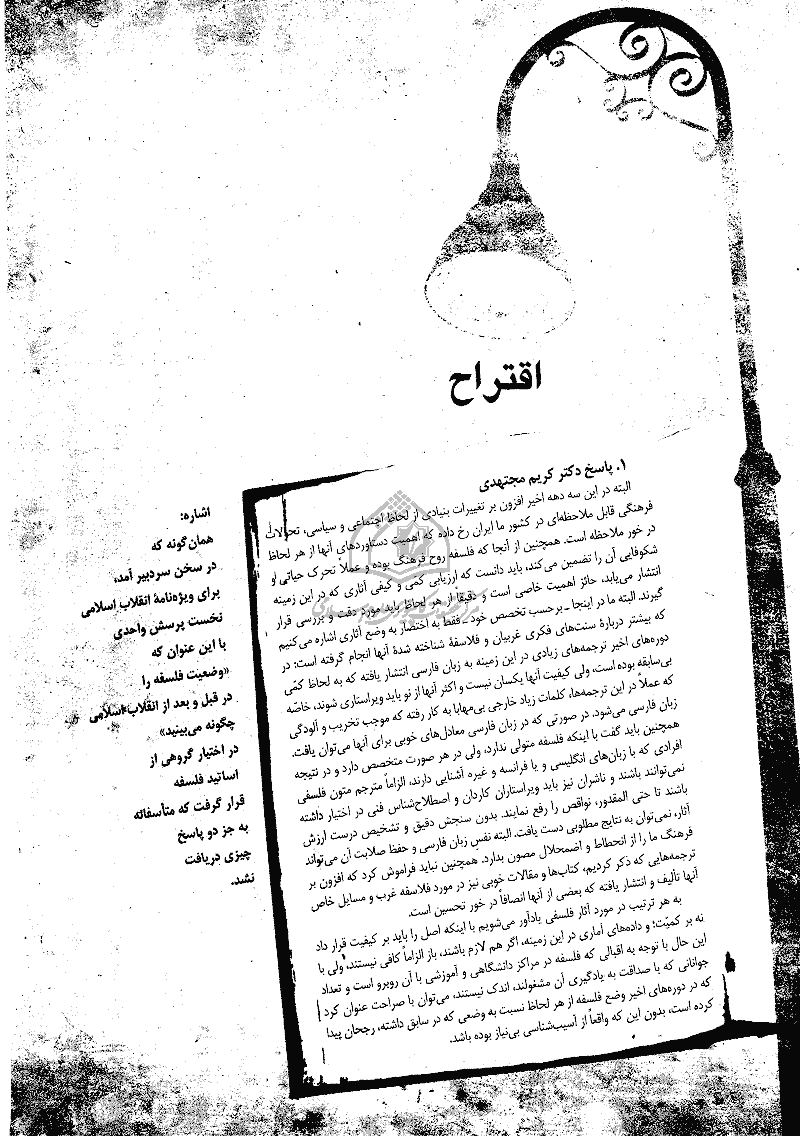 اقتراح
۱. پاسخ دکتر کریم مجتهدی
البته در این سه دهه اخیر افزون بر تغییرات بنیادی از لحاظ اجتماعی و سیاسی، تحولات
فرهنگی قابل ملاحظه‌ای در کشور ما ایران رخ داده که اهمیت دستاوردهای آنها از هر لحاظ
در خور ملاحظه است. همچنین از آنجا که فلسفه روح فرهنگ بوده و عملاً تحرک حیاتی و
شکوفایی آن را تضمین می‌کند، باید دانست که ارزیابی کمی و کیفی آثاری که در این زمینه
انتشار می‌یابد، حائز اهمیت خاصی است و دقیقاً از هر لحاظ باید مورد دقت و بررسی قرار
گیرند. البته ما در اینجا ـ برحسب تخصص خود ـ فقط به اختصار به وضع آثاری اشاره می‌کنیم
که بیشتر دربارهٔ سنت‌های فکری غربیان و فلاسفهٔ شناخته شدهٔ آنها انجام گرفته است: در
دوره‌های اخیر ترجمه‌های زیادی در این زمینه به زبان فارسی انتشار یافته که به لحاظ کمّی
بی‌سابقه بوده است، ولی کیفیت آنها یکسان نیست و اکثر آنها از نو باید ویراستاری شوند، خاصّه
که عملاً در این ترجمه‌ها، کلمات زیاد خارجی بی‌مهابا به کار رفته که موجب تخریب و آلودگی
زبان فارسی می‌شود. در صورتی که در زبان فارسی معادل‌های خوبی برای آنها می‌توان یافت.
همچنین باید گفت با اینکه فلسفه متولی ندارد، ولی در هر صورت متخصص دارد و در نتیجه
افرادی که با زبان‌های انگلیسی و یا فرانسه و غیره آشنایی دارند، الزاماً مترجم متون فلسفی
نمی‌توانند باشند و ناشران نیز باید ویراستاران کاردان و اصطلاح‌شناس فنی در اختیار داشته
باشند تا حتی المقدور، نواقص را رفع نمایند. بدون سنجش دقیق و تشخیص درست ارزش
آثار، نمی‌توان به نتایج مطلوبی دست یافت. البته نفس زبان فارسی و حفظ صلابت آن می‌تواند
فرهنگ ما را از انحطاط و اضمحلال مصون بدارد. همچنین نباید فراموش کرد که افزون بر
ترجمه‌هایی که ذکر کردیم، کتاب‌ها و مقالات خوبی نیز در مورد فلاسفه غرب و مسایل خاص
آنها تألیف و انتشار یافته که بعضی از آنها انصافاً در خور تحسین است.
به هر ترتیب در مورد آثار فلسفی یادآور می‌شویم با اینکه اصل را باید بر کیفیت قرار داد
نه بر کمیّت؛ و داده‌های آماری در این زمینه، اگر هم لازم باشند، باز الزاماً کافی نیستند، ولی با
این حال با توجه به اقبالی که فلسفه در مراکز دانشگاهی و آموزشی با آن روبرو است و تعداد
جوانانی که با صداقت به یادگیری آن مشغولند، اندک نیستند، می‌توان با صراحت عنوان کرد
که در دوره‌های اخیر وضع فلسفه از هر لحاظ نسبت به وضعی که در سابق داشته، رجحان پیدا
کرده است، بدون این که واقعاً از آسیب‌شناسی بی‌نیاز بوده باشد.
اشاره:
همان‌گونه که
در سخن سردبیر آمد،
برای ویژه‌نامهٔ انقلاب اسلامی
نخست پرسش واحدی
با این عنوان که
«وضعیت فلسفه را
در قبل و بعد از انقلاب اسلامی
چگونه می‌بینید»
در اختیار گروهی از
اساتید فلسفه
قرار گرفت که متأسفانه
به جز دو پاسخ
چیزی دریافت
نشد.